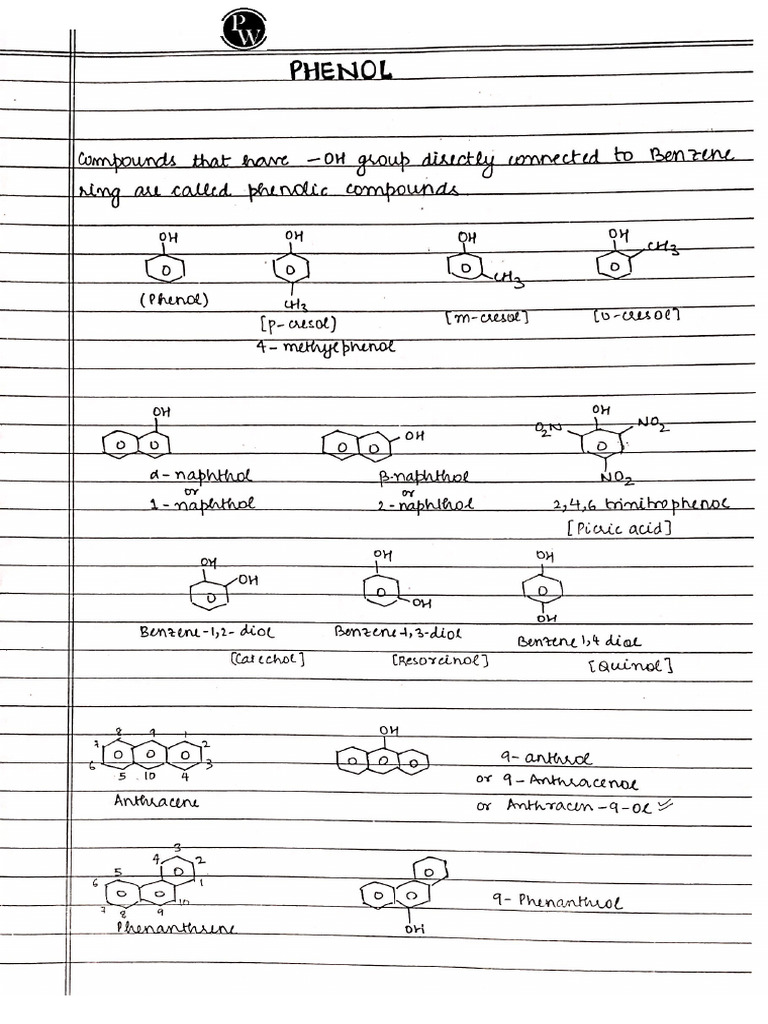 PW
PHENOL
Compounds that have -OH group directly connected to Benzene
ring are called phenolic compounds.
OH OH OH OH
CH3
CH3
(Phenol) CH3
[p-cresol] [m-cresol] [o-cresol]
4-methylphenol
OH OH OH
O2N NO2
NO2
α-naphthol β-naphthol
or or
1-naphthol 2-naphthol 2,4,6 trinitrophenol
[Picric acid]
OH OH OH
OH
OH
OH
Benzene-1,2-diol Benzene-1,3-diol Benzene 1,4 diol
[Catechol] [Resorcinol] [Quinol]
8 9 1 OH
7 2
6 3
5 10 4
9-anthrol
or 9-Anthracenol
Anthracene or Anthracen-9-ol
3
4 2
5 1
6
7 8 9 10
9-Phenanthrol
Phenanthrene OH